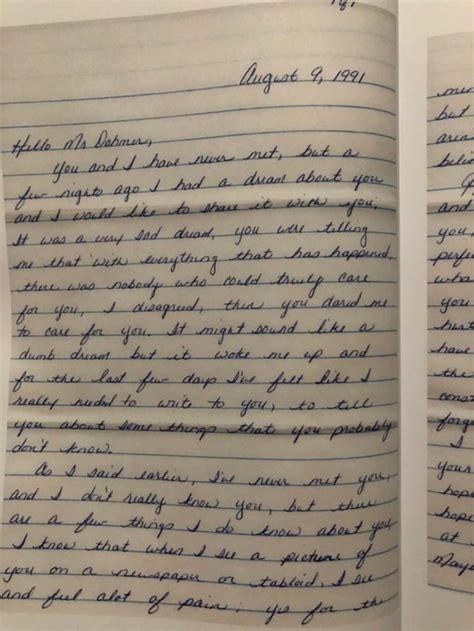 August 9, 1991
Hello Mr Dahmer,
You and I have never met, but a
few nights ago I had a dream about you
and I would like to share it with you.
It was a very sad dream, you were telling
me that with everything that has happened,
there was nobody who could truely care
for you, I disagreed, then you dared me
to care for you. It might sound like a
dumb dream but it woke me up and
for the last few days I've felt like I
really needed to write to you, to tell
you about some things that you probably
don't know.
As I said earlier, I've never met you,
and I don't really know you, but there
are a few things I do know about you,
I know that when I see a picture of
you on a newspaper or tabloid, I see
and feel alot of pain; yes for the
but
area
and
you,
who
you
have
the
I
your
hope
at